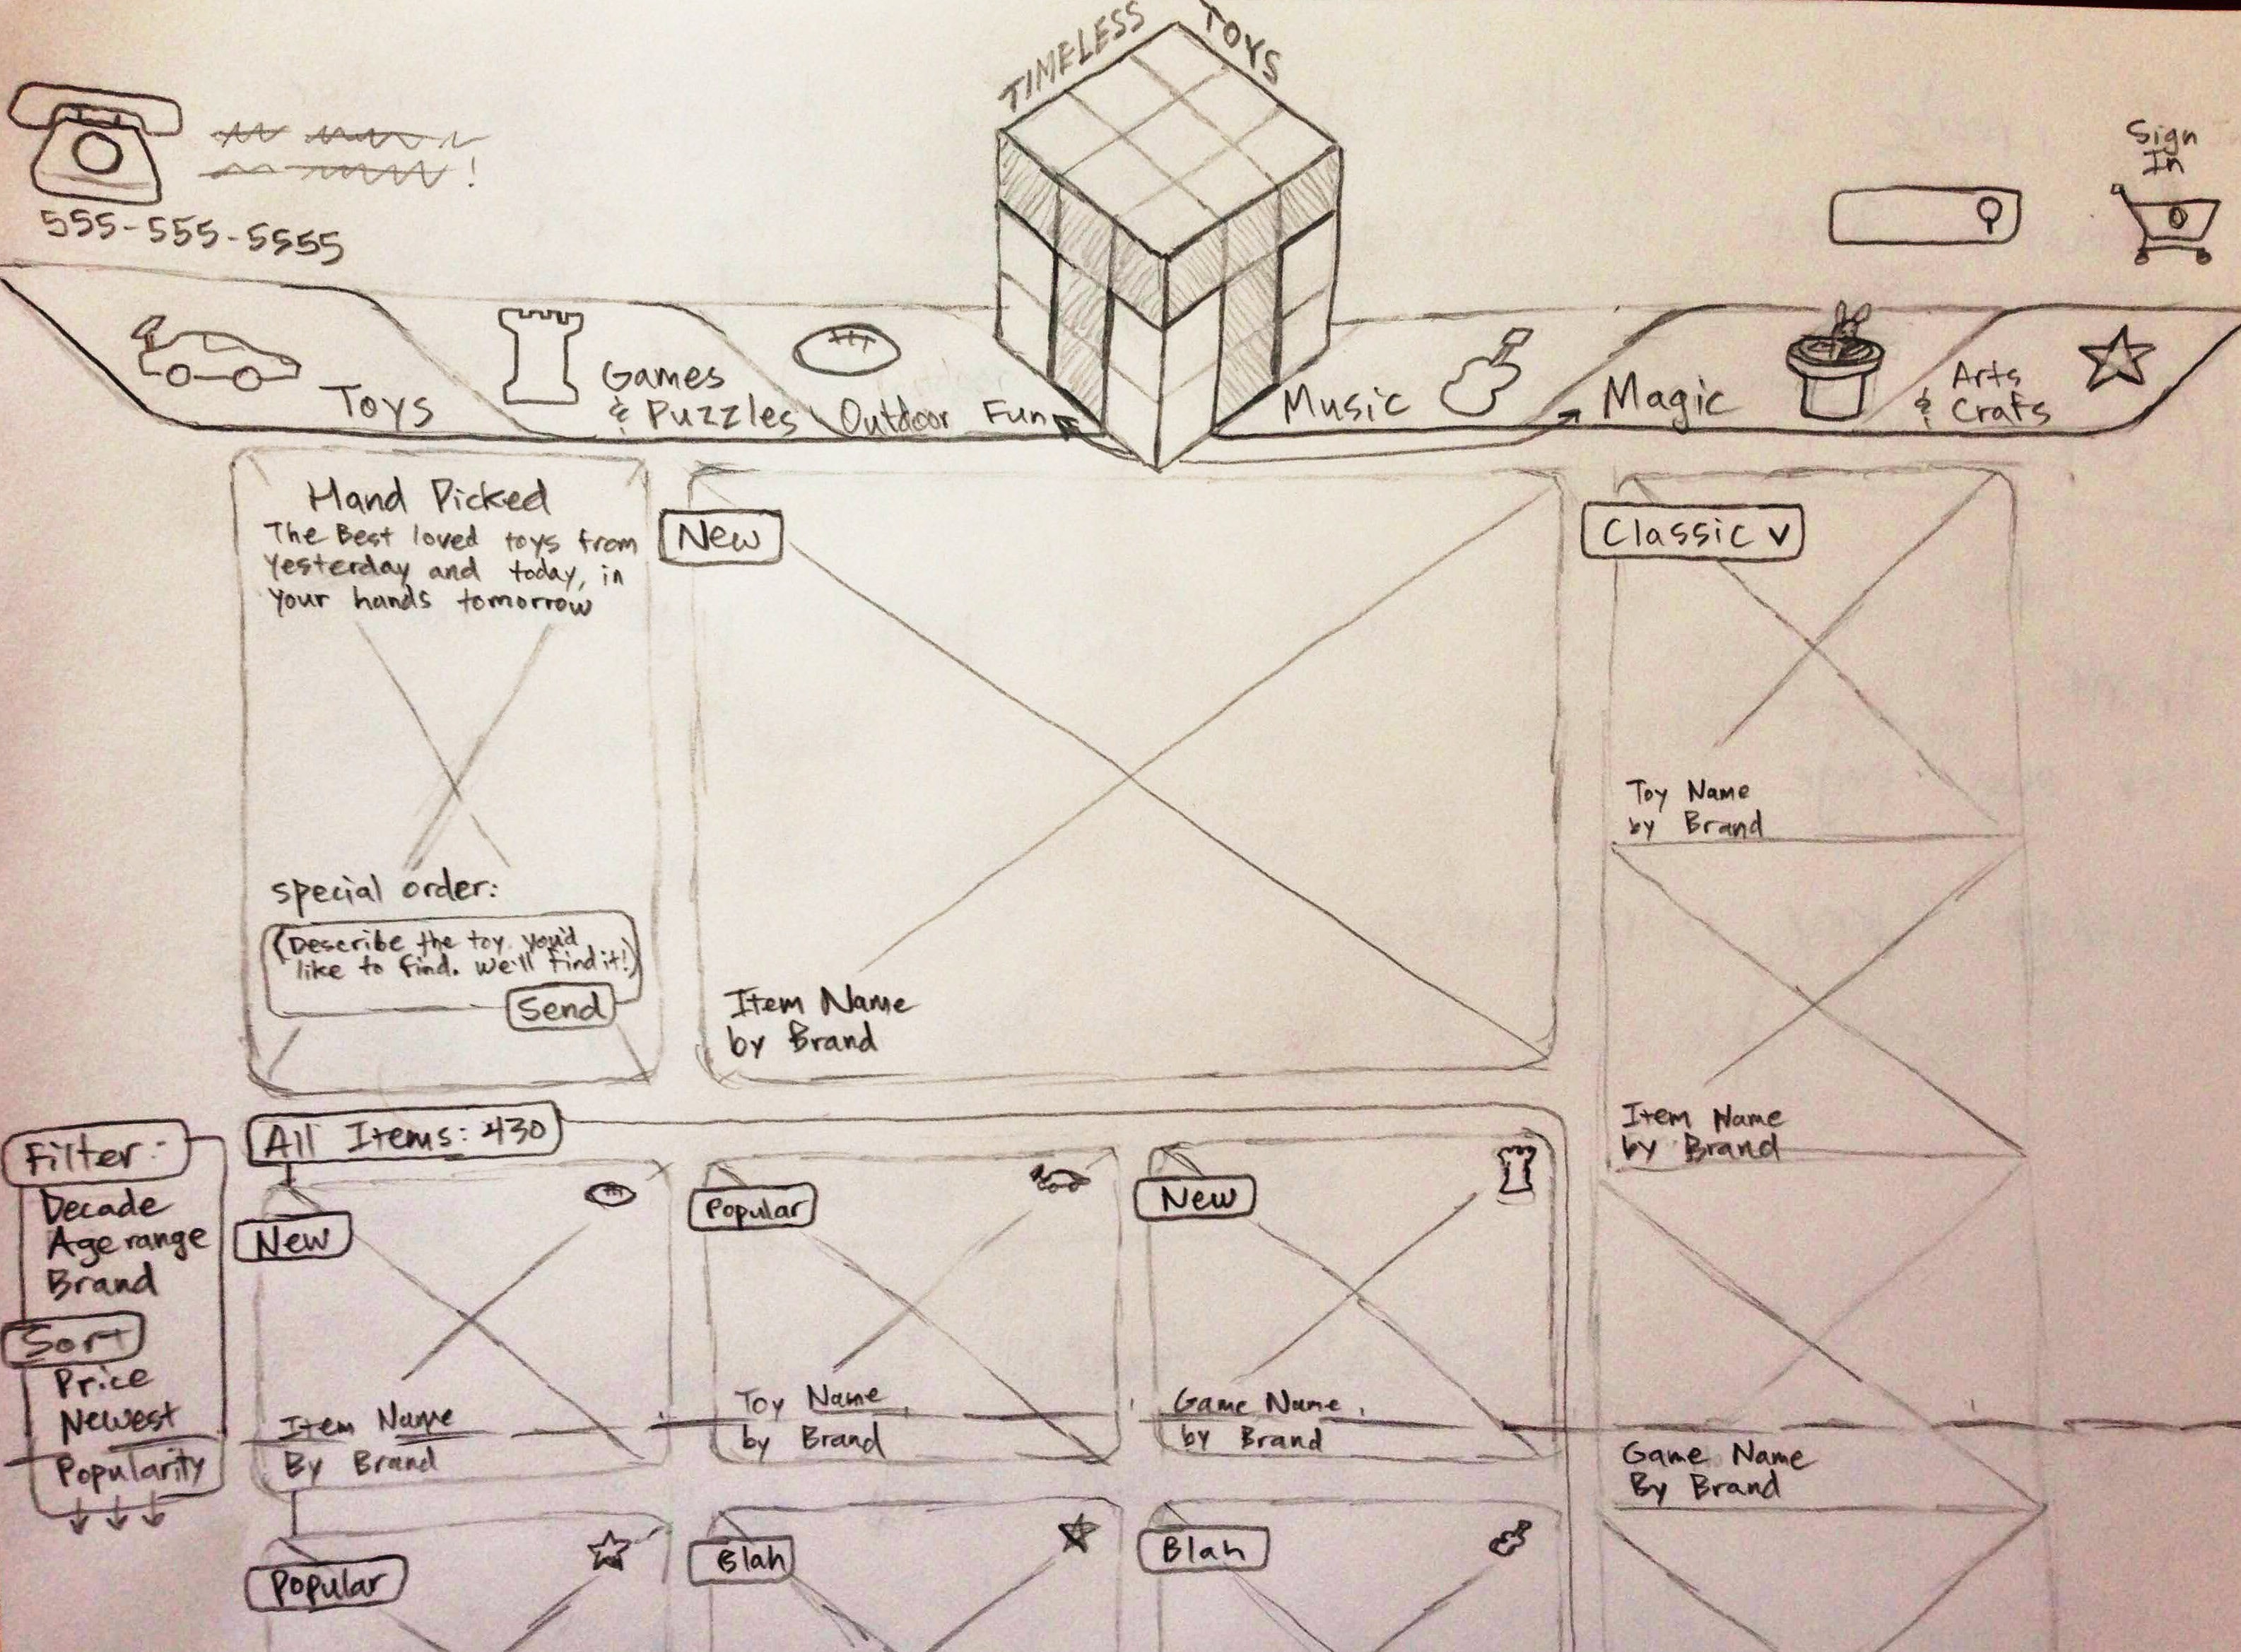 TIMELESS TOYS
555-555-5555
Sign
In
0
Toys
Games
& Puzzles
Outdoor Fun
Music
Magic
Arts
& Crafs
Hand Picked
The Best loved toys from
yesterday and today, in
your hands tomorrow
special order:
(Describe the toy you'd
like to find. We'll find it!)
Send
New
Item Name
by Brand
Classic v
Toy Name
by Brand
Item Name
by Brand
Game Name
By Brand
Filter:
Decade
Age range
Brand
Sort
Price
Newest
Popularity
All Items: 430
New
Item Name
By Brand
Popular
Toy Name
by Brand
New
Game Name
by Brand
Popular
Blah
Blah